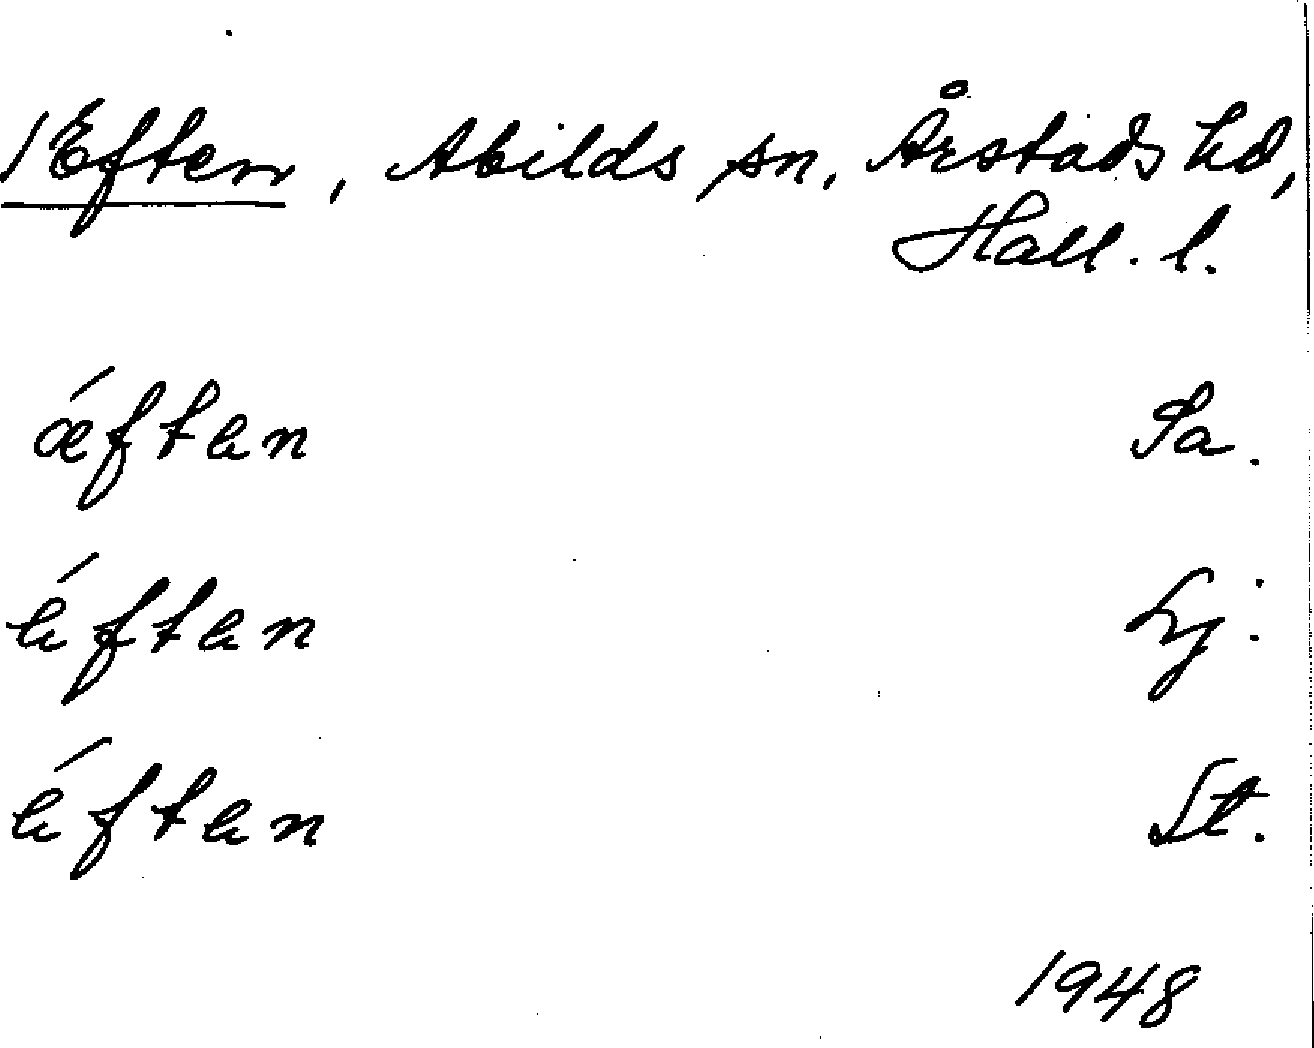 /Eftern, Abilds sn, Årstads hd,
Hall. l.
ǽften Sa.
éften Lj.
éften St.
1948